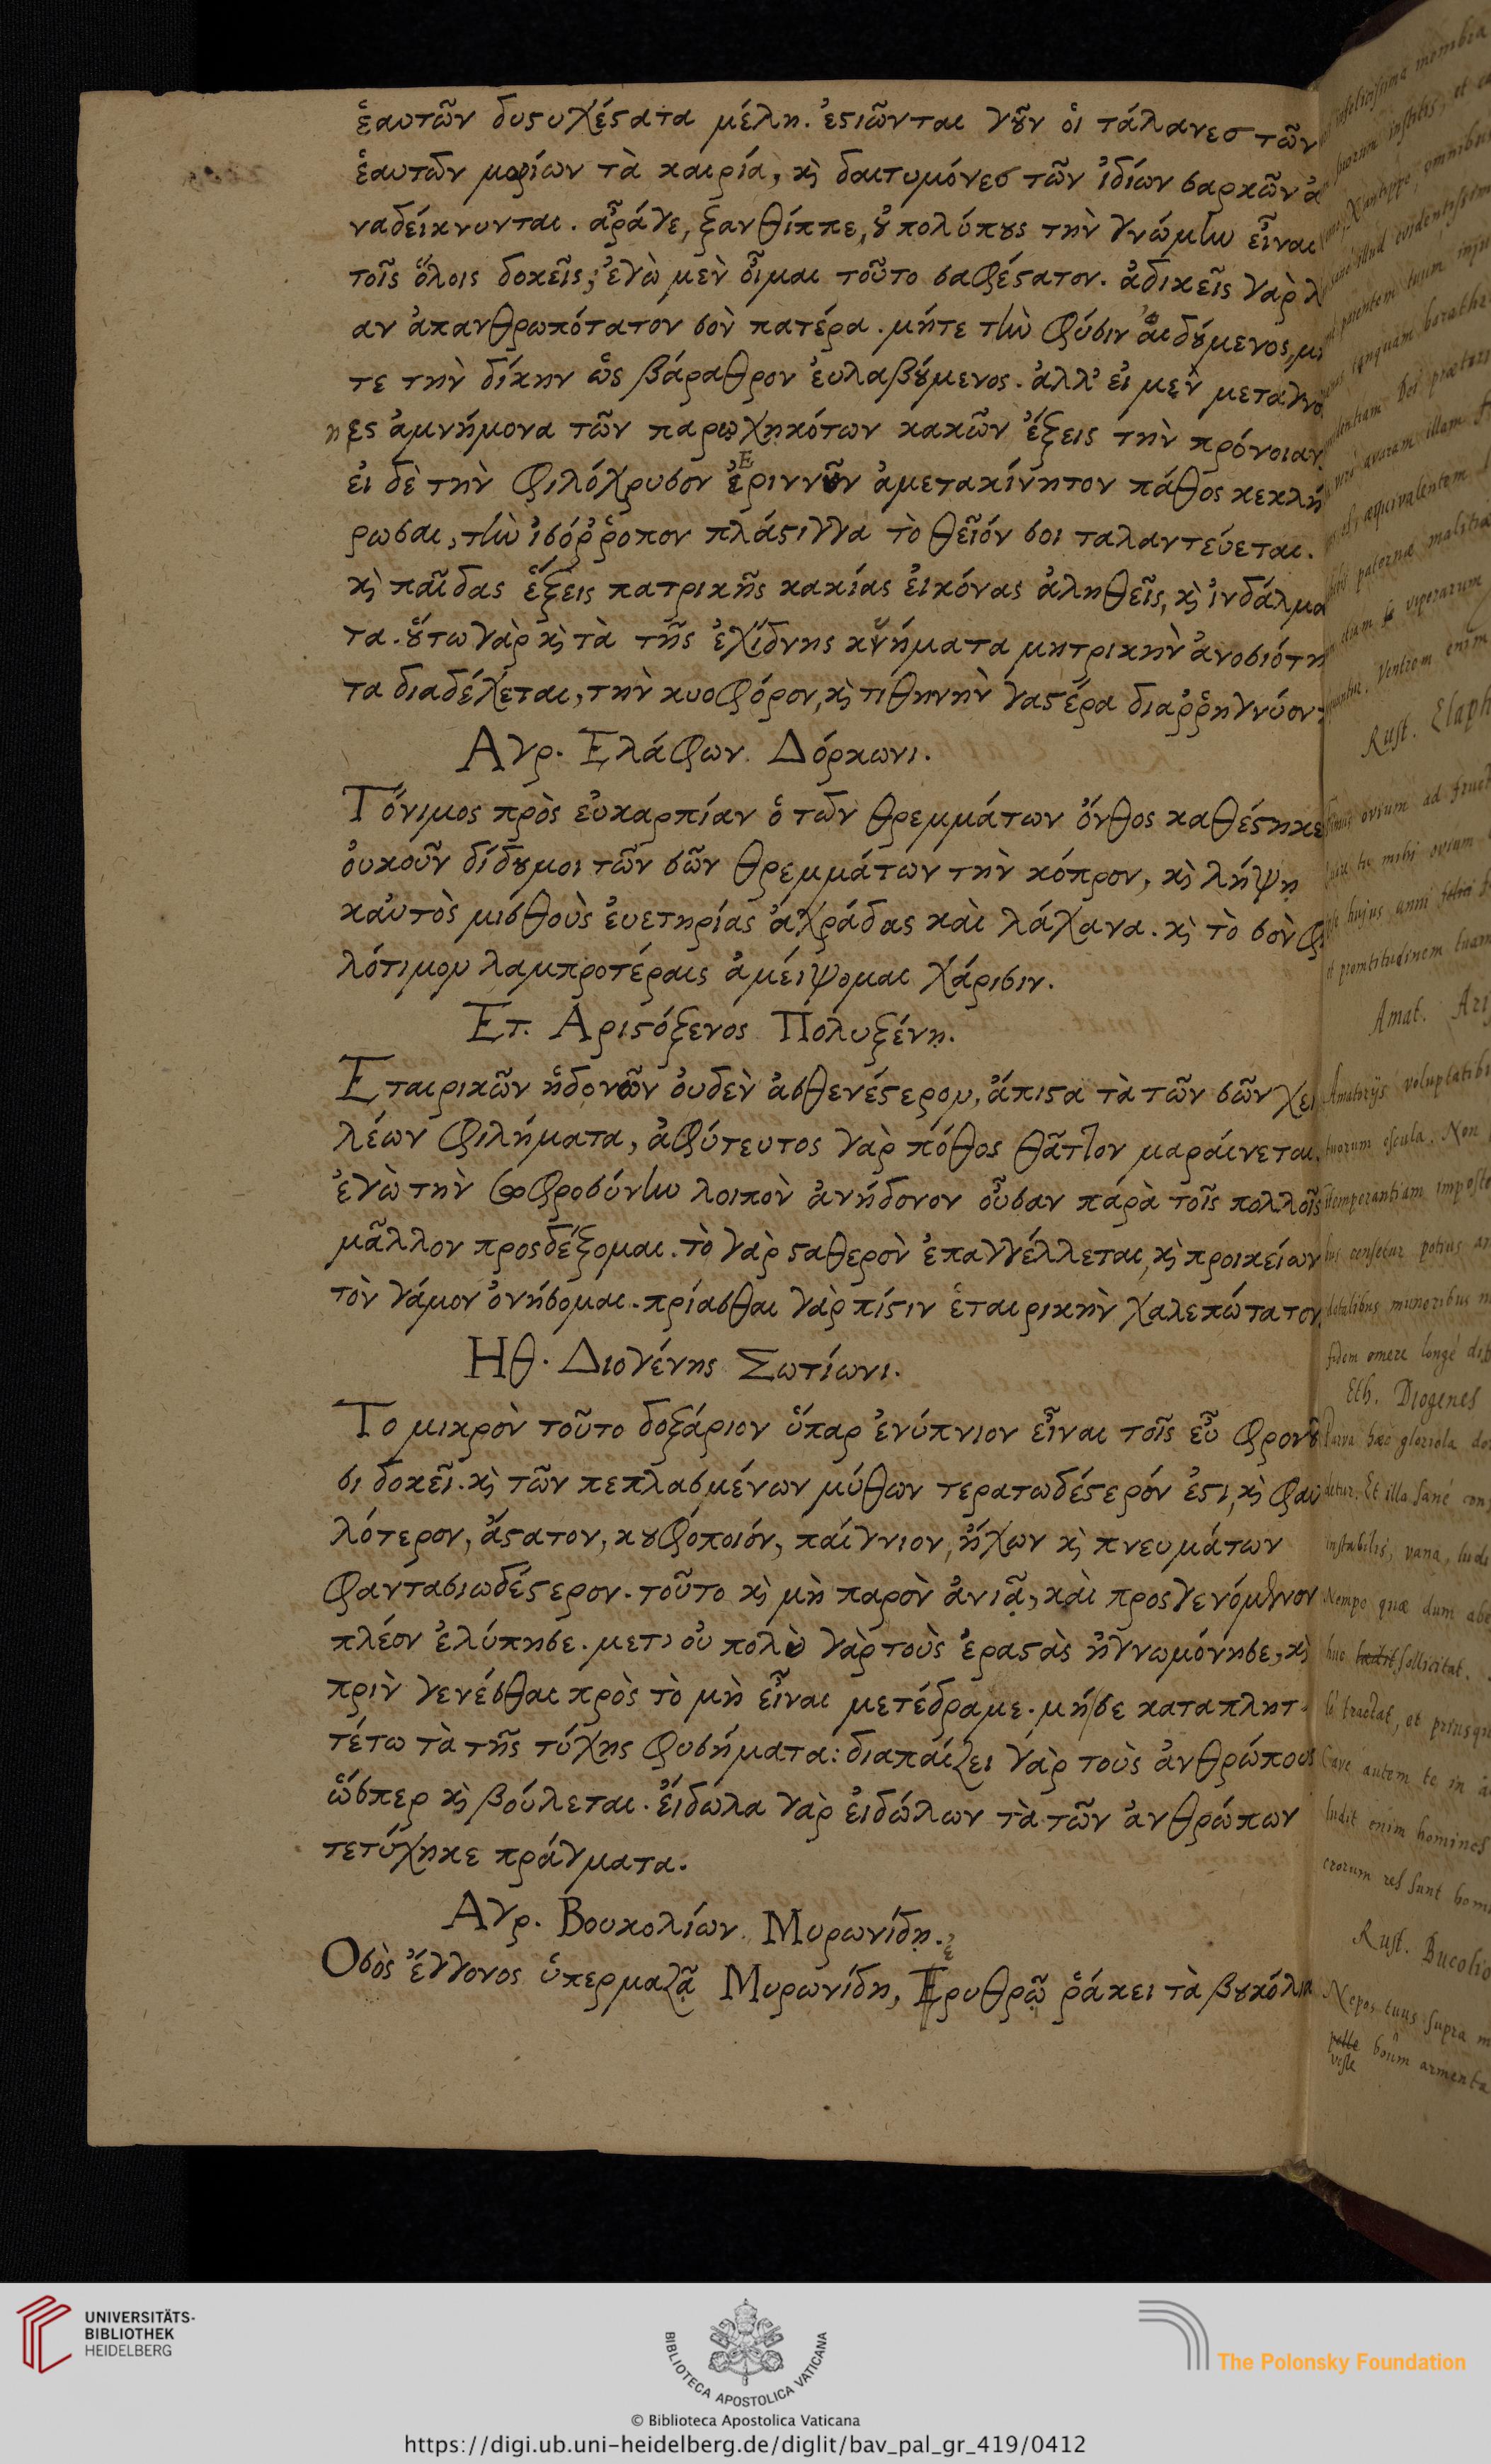 ἑαυτῶν δυστυχέστατα μέλη. ἐστιῶνται γοῦν ὁι τάλανες τῶν
ἑαυτῶν μορίων τὰ καιρία, κὶ δαιτυμόνες τῶν ἰδίων σαρκῶν ἀ
ναδείκνυνται. ἆράγε, ξανθίππε, ȣ̓ πολύπȣς τὴν γνώμην εἶναι
τοῖς ὅλοις δοκεῖς; ἐγὼ μὲν οἶμαι τοῦτο σαφέστατον. ἀδικεῖς γὰρ λ
αν ἀπανθρωπότατον σὸν πατέρα. μήτε τὴν φύσιν ἀιδȣ́μενος, μή
τε τὴν δίκην ὡς βάραθρον ἐυλαβȣ́μενος. ἀλλ' ἐι μὲν μεταγνο
ης ἀμνήμονα τῶν παρῳχηκότων κακῶν ἕξεις τὴν πρόνοιαν.
ἐι δὲ τὴν φιλόχρυσον ἐριννῦν ἀμετακίνητον πάθος κεκλή
ρωσαι, τὴν ἰσόῤῥοπον πλάστιγγα τὸ θεῖόν σοι ταλαντεύεται.
κὶ παῖδας ἕξεις πατρικῆς κακίας ἐικόνας ἀληθεῖς, κὶ ἰνδάλμα
τα. ȣ́τω γὰρ κὶ τὰ τῆς ἐχίδνης κυήματα μητρικὴν ἀνοσιότη
τα διαδέχεται, τὴν κυοφόρον, κὶ τιθηνὴν γαστέρα διαῤῥηγνύον
Αγρ. Ελάφων. Δόρκωνι.
Γόνιμος πρὸς ἐυκαρπίαν ὁ τῶν θρεμμάτων ὄνθος καθέστηκε
ὀυκοῦν δίδȣμοι τῶν σῶν θρεμμάτων τὴν κόπρον, κὶ λήψῃ
κἀυτὸς μισθοὺς ἐυετηρίας ἀχράδας κὰι λάχανα. κὶ τὸ σὸν φι
λότιμον λαμπροτέραις ἀμείψομαι χάρισιν.
Ετ. Αριστόξενος Πολυξένῃ.
Εταιρικῶν ἡδονῶν ὀυδὲν ἀσθενέστερον, ἄπιστα τὰ τῶν σῶν χει
λέων φιλήματα, ἀφύτευτος γὰρ πόθος θᾶττον μαράινεται.
ἐγὼ τὴν σωφροσύνην λοιπὸν ἀνήδονον οὖσαν παρὰ τοῖς πολλοῖς
μᾶλλον προσδέξομαι. τὸ γὰρ σταθερὸν ἐπαγγέλλεται, κὶ προικείων
τὸν γάμον ὀνήσομαι. πρίασθαι γὰρ πίστιν ἑταιρικὴν χαλεπώτατον.
Ηθ. Διογένης Σωτίωνι.
Το μικρὸν τοῦτο δοξάριον ὕπαρ ἐνύπνιον εἶναι τοῖς εὖ φρονȣ
σι δοκεῖ. κὶ τῶν πεπλασμένων μύθων τερατωδέστερόν ἐστι, κὶ φαυ
λότερον, ἄστατον, κȣφόποιόν, παίγνιον, ἤχων κὶ πνευμάτων
φαντασιωδέστερον. τοῦτο κὶ μὴ παρὸν ἀνιᾷ, κὰι προσγενόμενον
πλέον ἐλύπησε. μετ' οὐ πολὺ γὰρ τοὺς ἐραστὰς ἠγνωμόνησε, κὶ
πρὶν γενέσθαι πρὸς τὸ μὴ εἶναι μετέδραμε. μή σε καταπλητ-
τέτω τὰ τῆς τύχης φυσήματα: διαπάιζει γὰρ τοὺς ἀνθρώπους
ὥσπερ κὶ βούλεται. ἔιδωλα γὰρ ἐιδώλων τὰ τῶν ἀνθρώπων
τετύχηκε πράγματα.
Αγρ. Βουκολίων. Μυρωνίδῃ.
Οσὸς ἔγγονος ὑπερμαζᾷ Μυρωνίδη, Ερυθρῷ ῥάκει τὰ βȣκόλια
Rust. Elaph
Amat. Ari
Amatorijs voluptatib
tuorum oscula. Non
temperantiam imposte
dotalibus muneribus
fidem emere longé
Eth. Diogenes
Parva hæc gloriola
detur. Et illa sané con
instabilis, vana, ludi
Nempe quæ dum abe
huc sollicitat.
tractat, et priusqu
Cave autem te in
ludit enim homines
crorum res sunt hom
Rust. Bucolio
Nepos tuus supra m
pelle boum armenta
veste
UNIVERSITÄTS-
BIBLIOTHEK
HEIDELBERG
BIBLIOTECA APOSTOLICA VATICANA
© Biblioteca Apostolica Vaticana
The Polonsky Foundation
https://digi.ub.uni-heidelberg.de/diglit/bav_pal_gr_419/0412